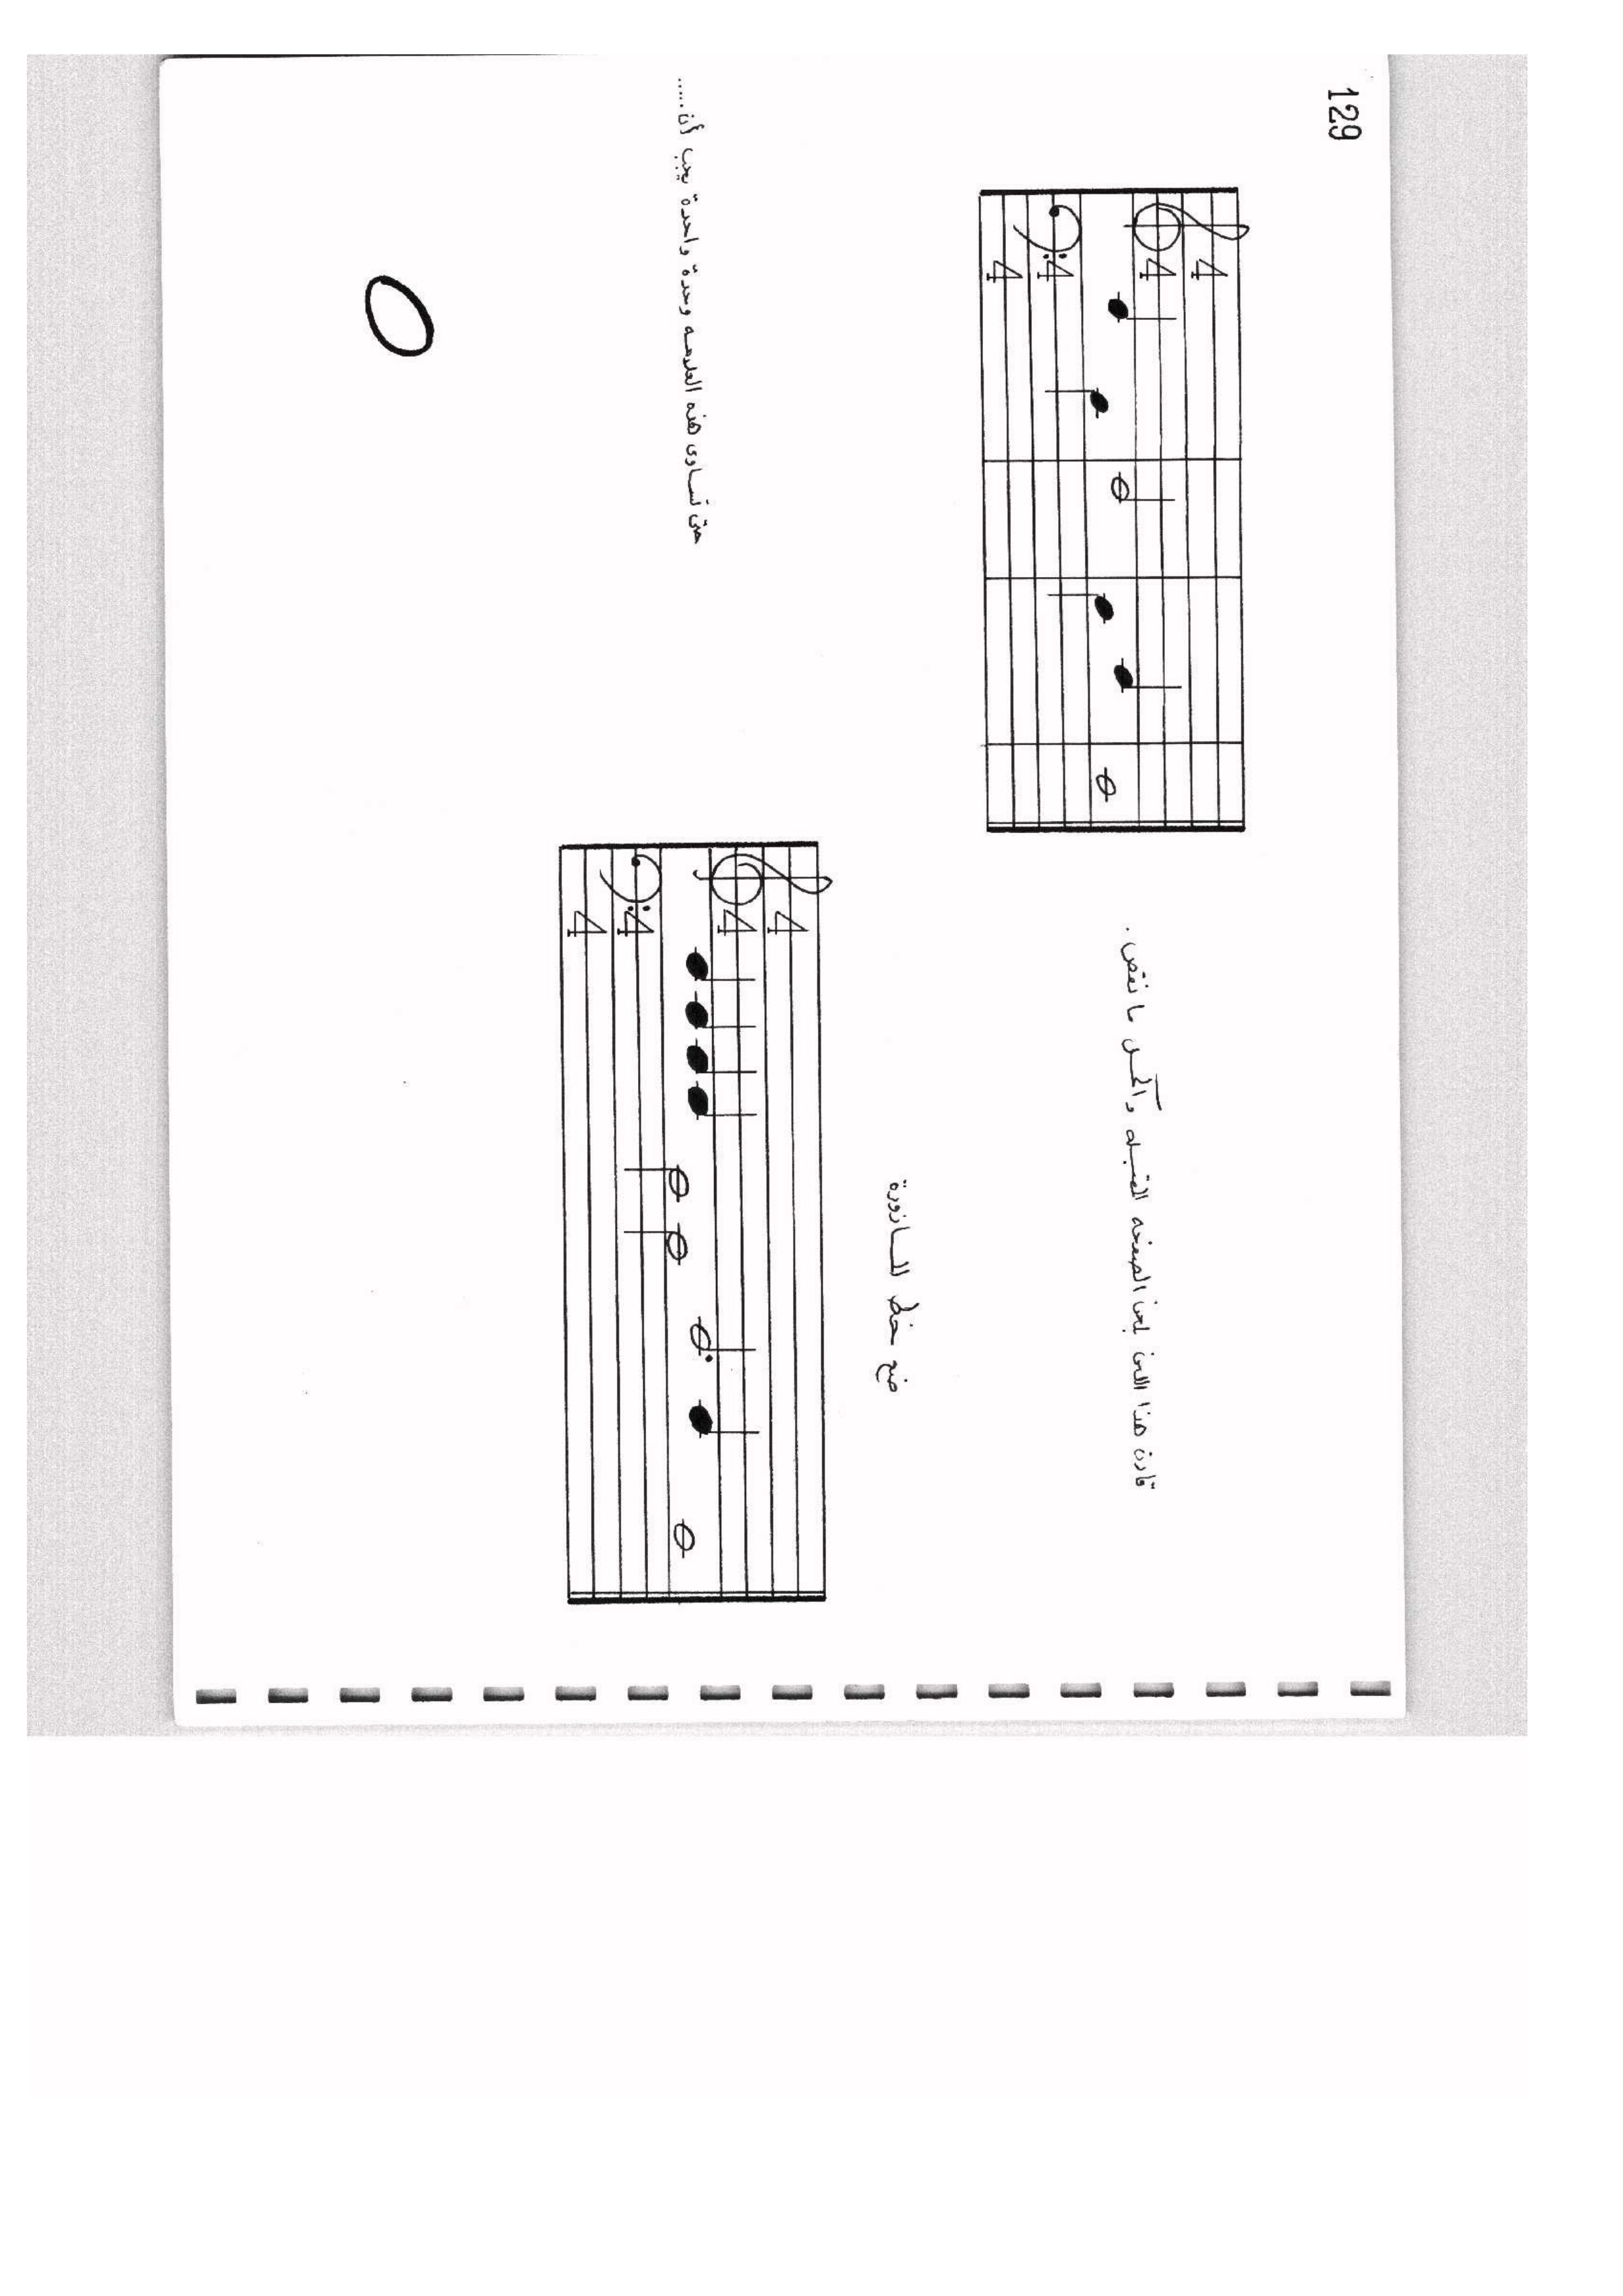 129
قارن هذا اللحن بلحن الصفحه المقبله وأكمل ما نقص .
4 4
4 4
ضع خط المازورة
4 4
4 4
حتى تساوى هذه العلامه وحدة واحدة يجب أن .....